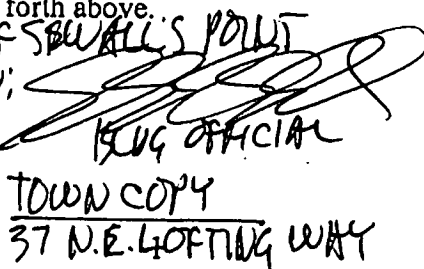 forth above.
F SEWALL'S POINT
BLDG OFFICIAL
TOWN COPY
37 N.E. LOFTING WAY